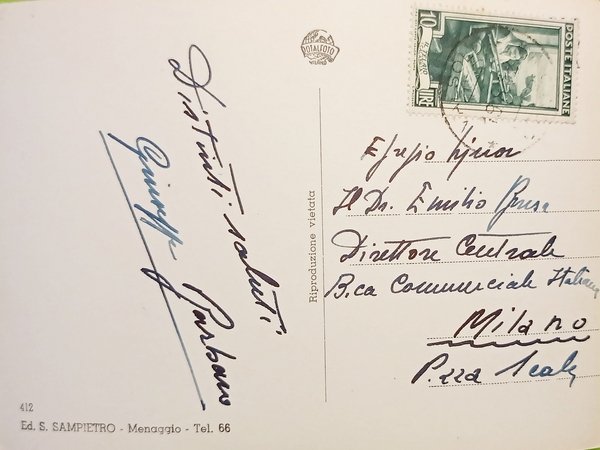 Distinti saluti
Giuseppe Barbano
412
Ed. S. SAMPIETRO - Menaggio - Tel. 66
Riproduzione vietata
TOTALFOTO
MILANO
10
LIRE
POSTE ITALIANE
Egregio Signor
Il Dr. Emilio
Direttore Centrale
B.ca Commerciale Italiana
Milano
P.zza Scala